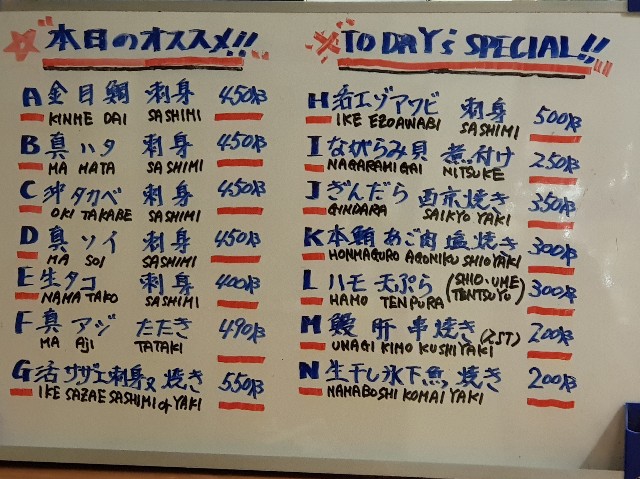 本日のオススメ!!
A 金目鯛 刺身 450฿
KINME DAI SASHIMI
B 真ハタ 刺身 450฿
MA HATA SASHIMI
C 沖タカベ 刺身 450฿
OKI TAKABE SASHIMI
D 真ソイ 刺身 450฿
MA SOI SASHIMI
E 生タコ 刺身 400฿
NAMA TAKO SASHIMI
F 真アジ たたき 490฿
MA AJI TATAKI
G 活サザエ刺身又焼き 550฿
IKE SAZAE SASHIMI or YAKI
TODAY's SPECIAL!!
H 活エゾアワビ 刺身 500฿
IKE EZOAWABI SASHIMI
I ながらみ貝 煮付け 250฿
NAGARAMIGAI NITSUKE
J ぎんだら 西京焼き 350฿
GINDARA SAIKYO YAKI
K 本鮪あご肉塩焼き 300฿
HONMAGURO AGONIKU SHIOYAKI
L ハモ 天ぷら (SHIO・UME TENTSUYU) 300฿
HAMO TENPURA
M 鰻 肝 串焼き (2ST) 200฿
UNAGI KIMO KUSHIYAKI
N 生干し氷下魚 焼き 200฿
NAMABOSHI KOMAI YAKI